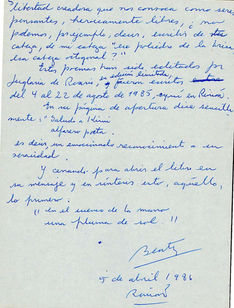 libertad creadora que nos convoca como seres
pensantes, heroicamente libres, ¿no
podemos, p.ejemplo, decir, escribir de tu
cabeza, de mi cabeza "ese poliedro de la brisa
esa cabeza ortogonal"?
Estos poemas han sido editados por
Juglaría de Rosario, en edición limitada,
y fueron escritos,
del 4 al 22 de agosto de 1985, aquí en Reinoó
En su página de apertura dice sencilla
mente: "Saludo a Kimi
alfarero poeta.
es decir un emocionado reconocimiento a su
seriedad.
Y cerrando para abrir el libro en
su mensaje y en síntesis esto, aquello,
lo primero.
"en el cuenco de la mano
una pluma de sol."
Beatriz
5 de abril 1986